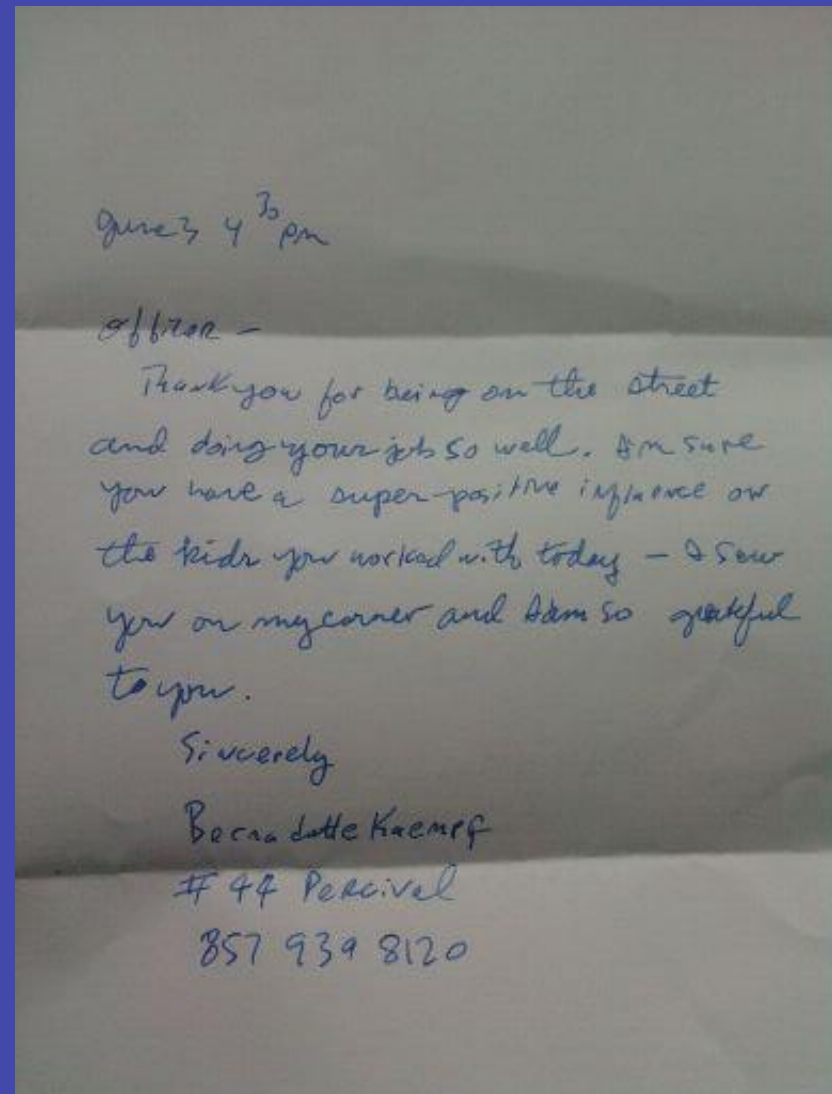 June 3 4 30 pm
Officer –
Thank you for being on the street
and doing your job so well. Am sure
you have a super-positive influence on
the kids you worked with today – I saw
you on my corner and I am so grateful
to you.
Sincerely
Bernadette Kaempf
# 44 Percival
857 939 8120